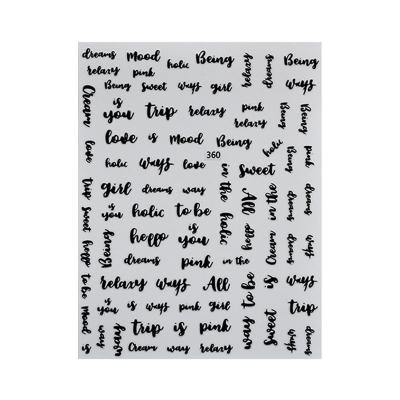 dreams mood holic Being
relaxy pink
Being sweet ways girl
relaxy
dreams
Being
ways
is
you trip relaxy pink
relaxy
Being
Being
love is mood Being
holic ways love 360
sweet
holic
Being
pink
Cream
love
trip
sweet
hello
to be
mood
is
girl dreams way
in the
holic
All
hello
Cream in the
dreams
dreams
is
you holic to be
hello is
you
Being
dreams pink in the
is
dreams
ways
relaxy ways All
way to be
is
sweet
ways
is
you is ways pink girl
trip
ways
way
trip is pink
Cream way relaxy
ways
dreams